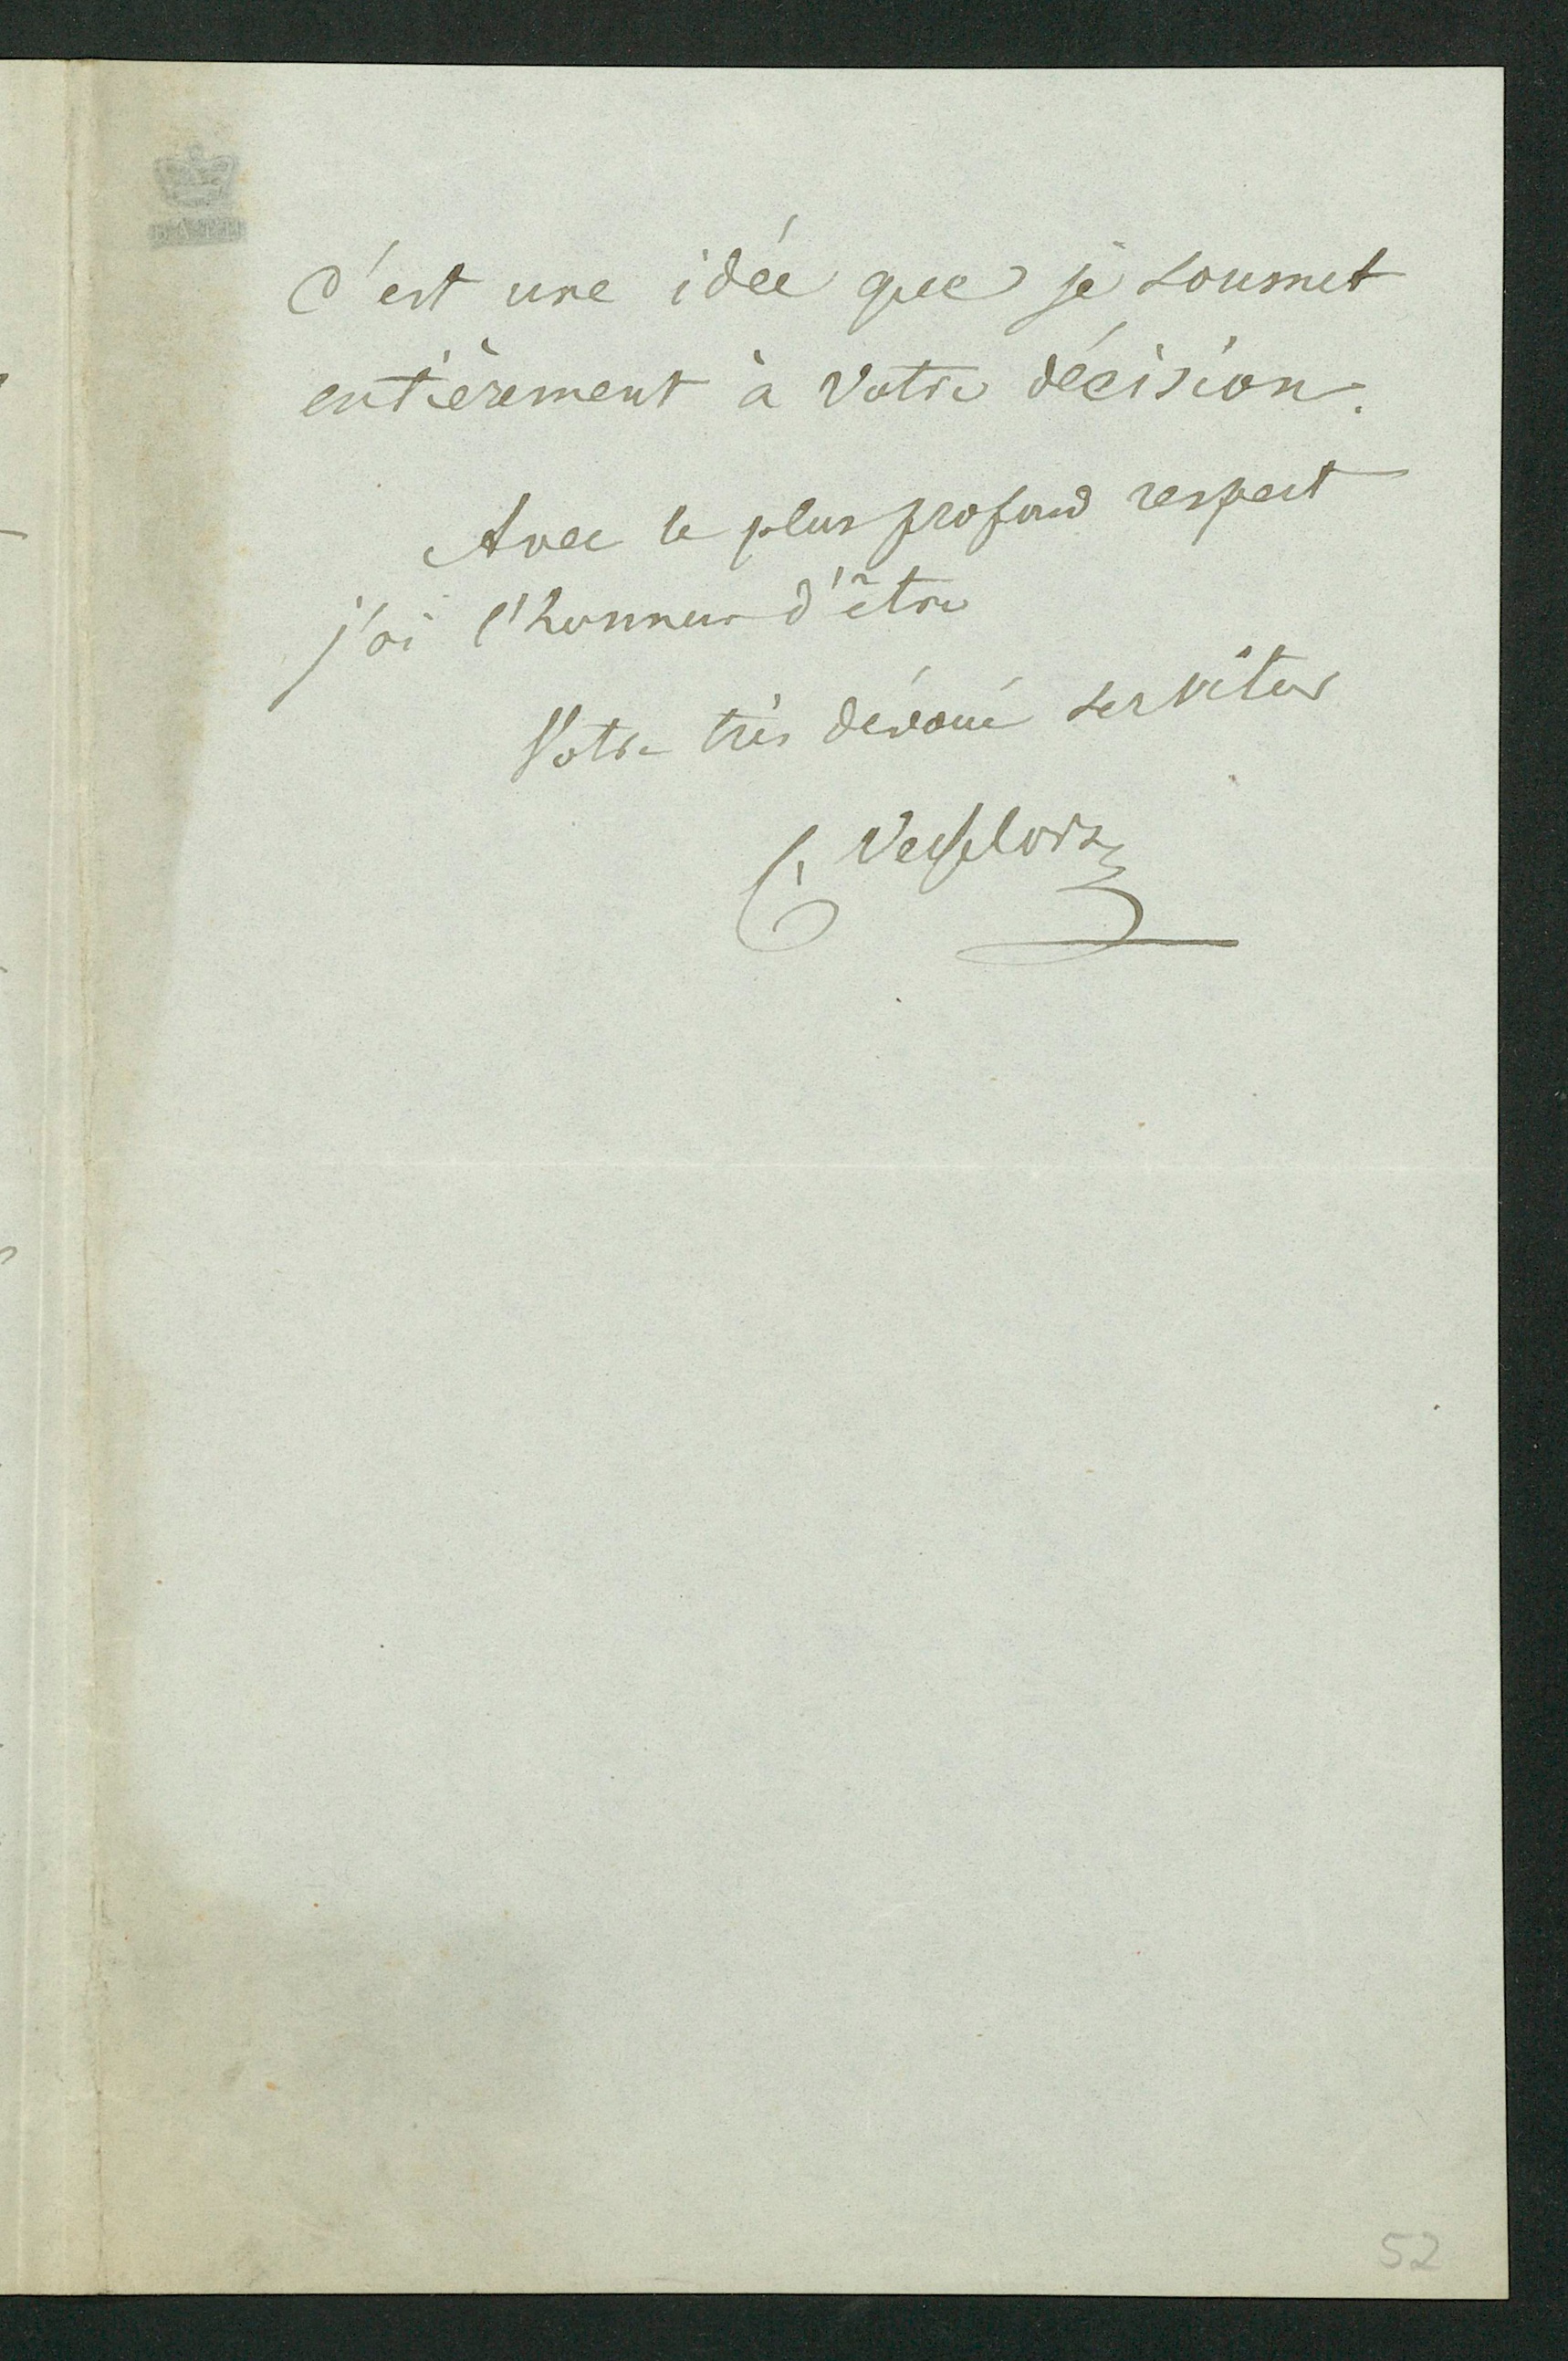 C'est une idée que je soumet
entièrement à Votre décision.
Avec le plus profond respect
j'ai l'honneur d'être
Votre très dévoué serviteur
C
52